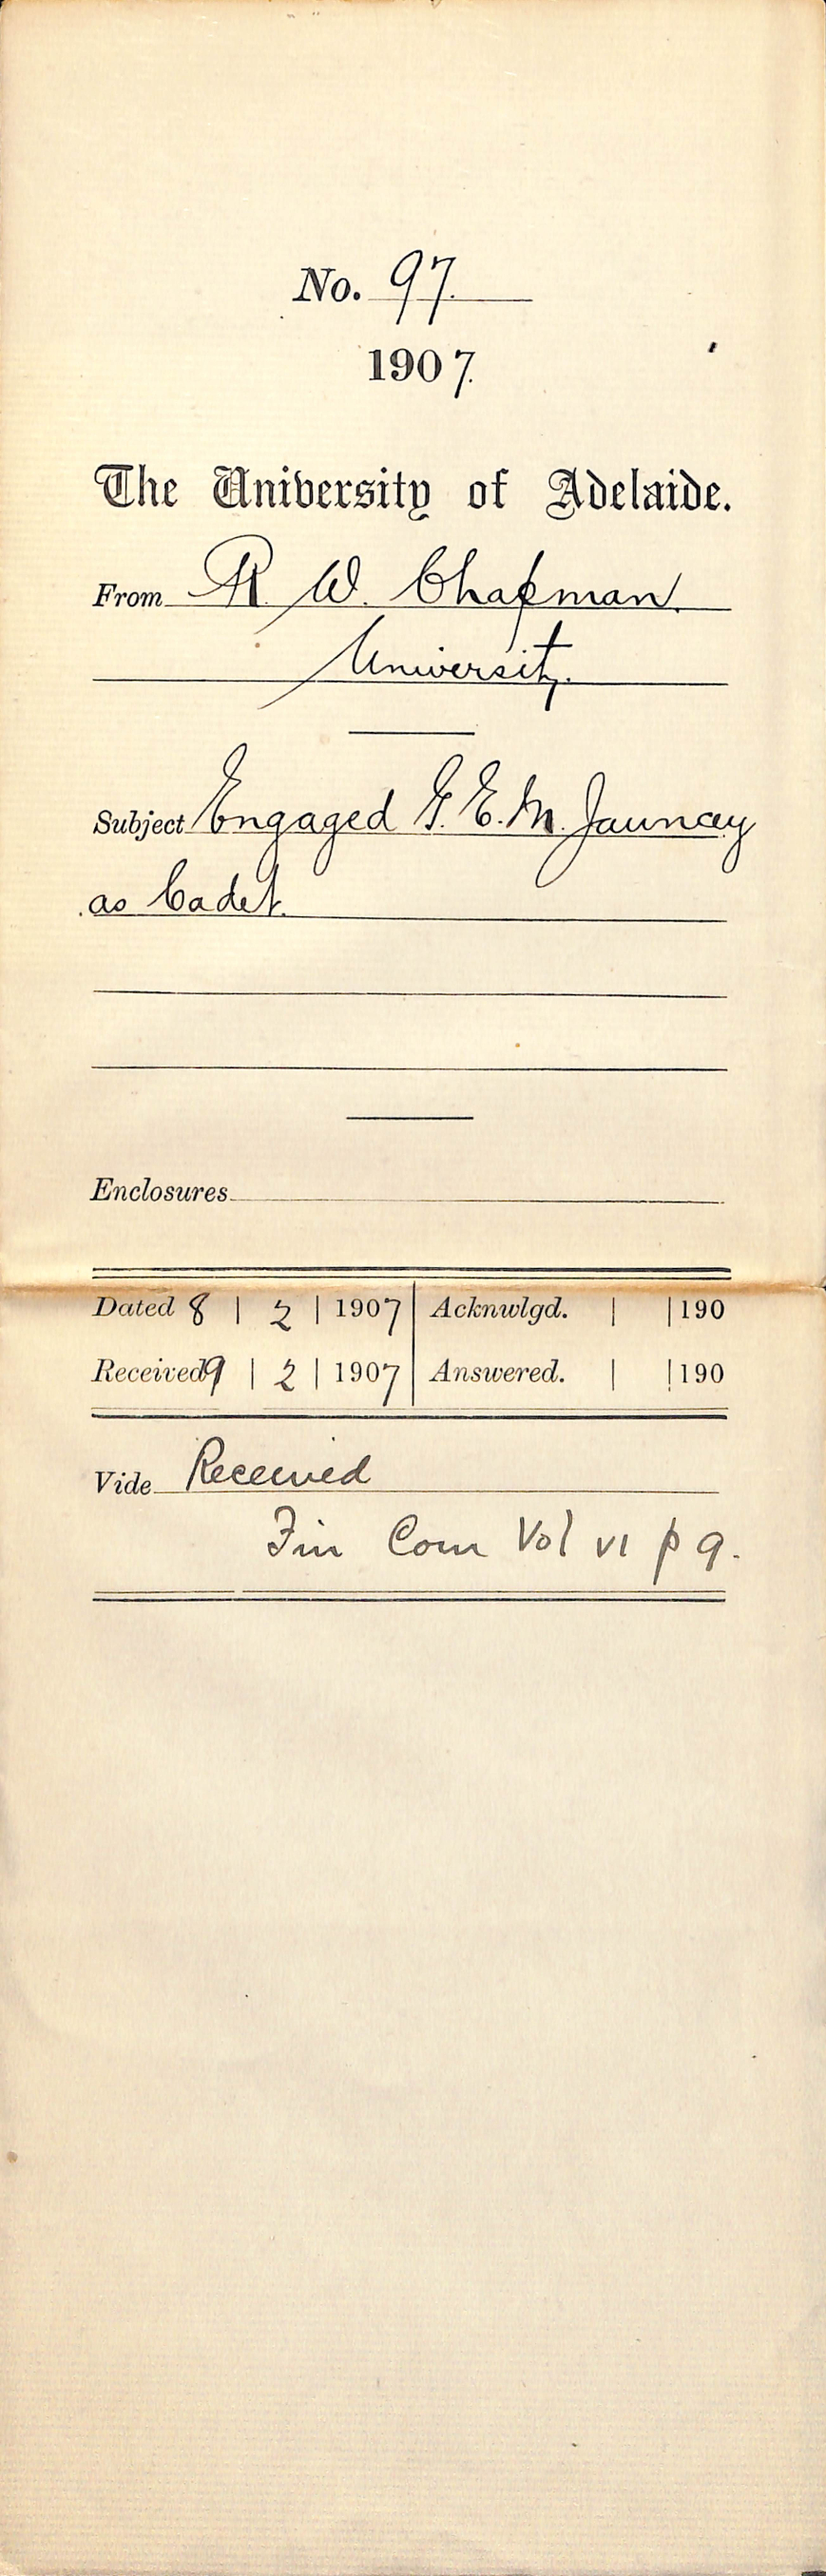 No. 97.
1907.
The University of Adelaide.
From R. W. Chapman.
University.
Subject Engaged G. E. M. Jauncey
as Cadet.
Enclosures
Dated 8 | 2 | 1907 | Acknwlgd. | | 190
Received 9 | 2 | 1907 | Answered. | | 190
Vide Received
Fin Com Vol VI p 9.